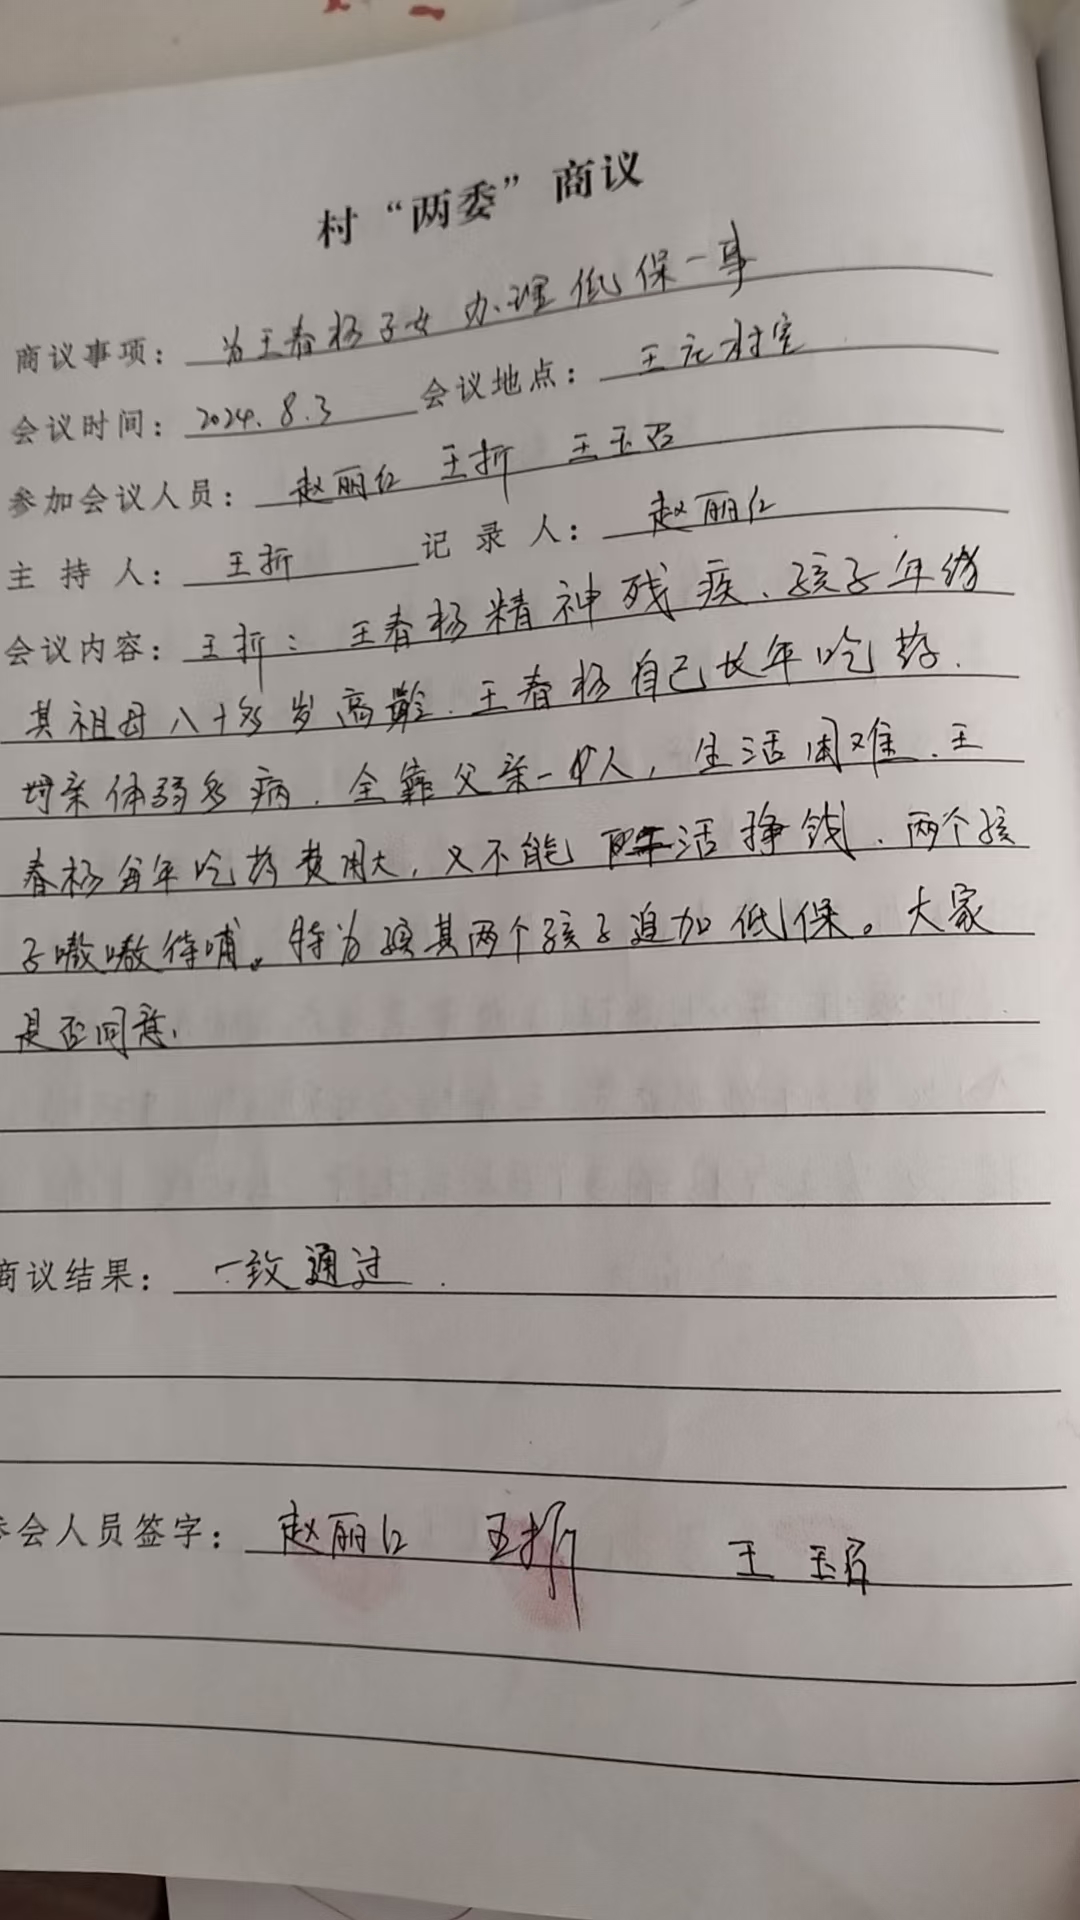 村“两委”商议
商议事项：为王春杨子女办理低保一事
会议时间：2024.8.3 会议地点：王元村室
参加会议人员：赵丽红 王折 王玉召
主持人：王折 记录人：赵丽红
会议内容：王折：王春杨精神残疾、孩子年幼
其祖母八十多岁高龄.王春杨自己长年吃药.
母亲体弱多病.全靠父亲一个人，生活困难.王
春杨每年吃药费用大，又不能 活挣钱.两个孩
子嗷嗷待哺。特为 其两个孩子追加低保。大家
是否同意.
商议结果：一致通过.
参会人员签字：赵丽红 王折 王玉召